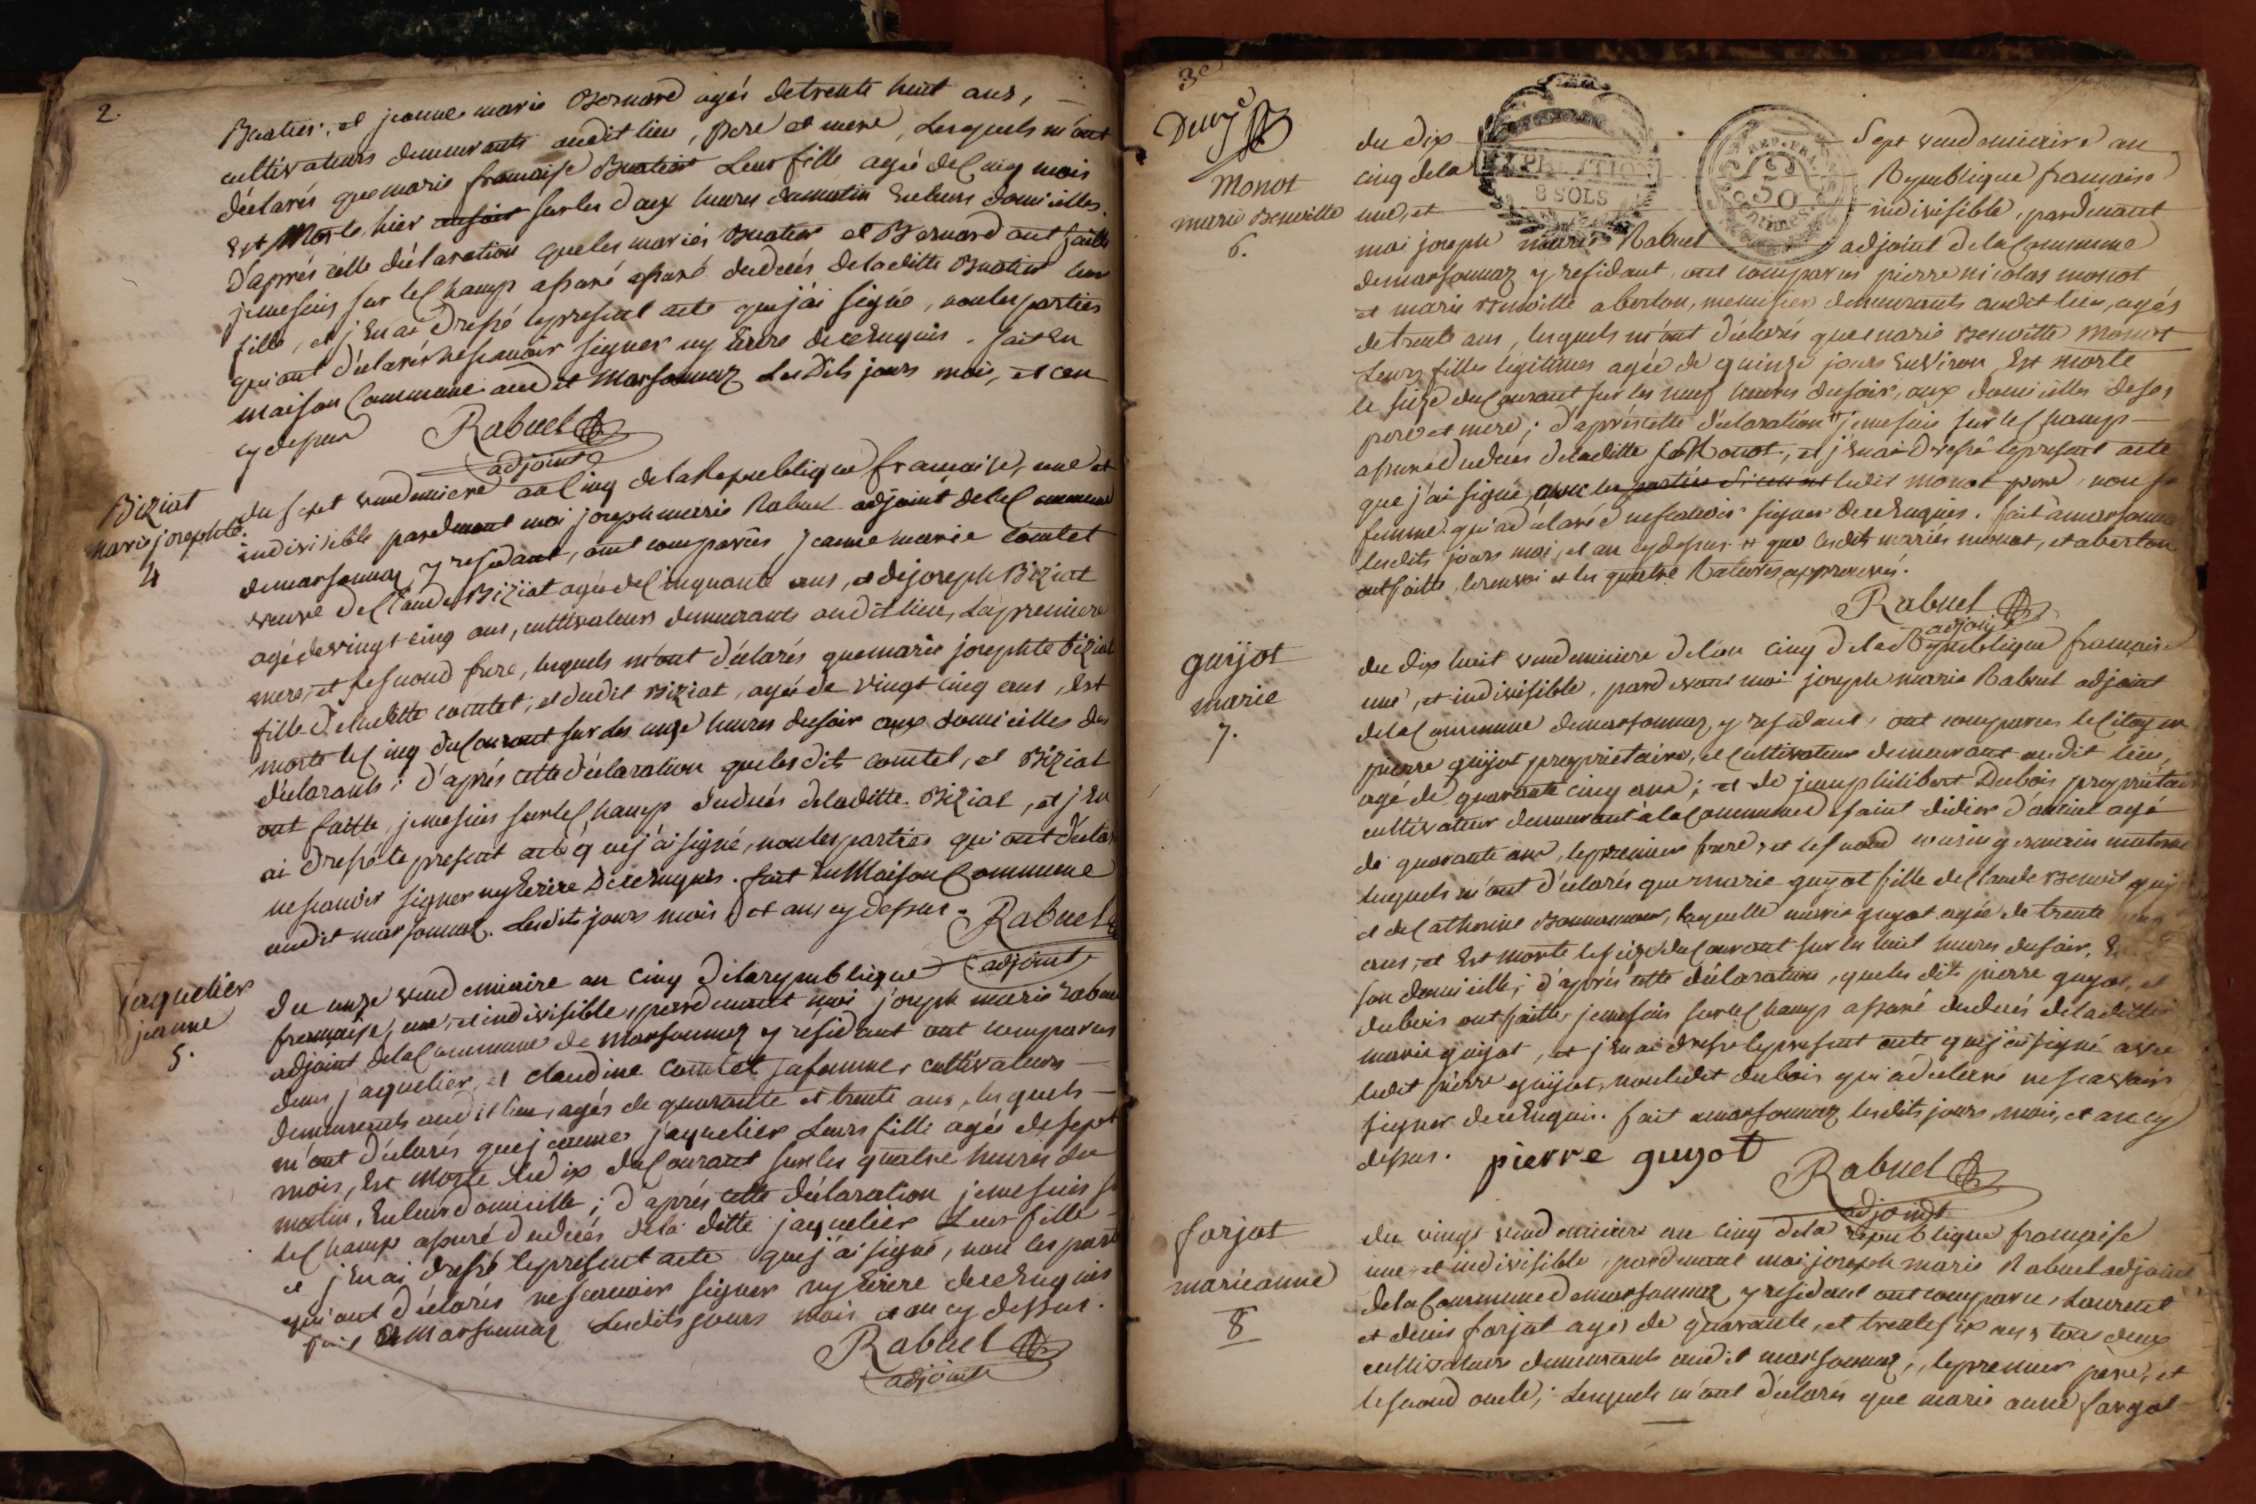 2.
Buatier, et jeanne marie Bernard agés de trente huit ans,
cultivateurs demeurants audit lieu, pere et mere, Lesquels m'ont
déclarés que marie francoise Buatier Leur fille agée de Cinq mois
Est Morte hier au soir sur les deux heures du matin En leurs domicilles.
d'après cette déclaration que les mariés Buatier et Bernard ont faitte
je me suis sur le Champ assuré du decés de la ditte Buatier leur
fille, et j'En ai Dressé le present acte que j'ai signé, non les parties
qui ont déclarés ne scavoir signer ny Ecrire de ce Enquis. fait En
maison Commune audit Marsonnaz Les Dits jours mois, et an
cy dessus
Rabuel
adjoint
Biziat
marie josephte.
4
du sept vendemiere an Cinq de la Republique francaise, une et
indivisible pardevant moi joseph marie Rabuel adjoint de la Commune
de marsonnaz y residant, ont comparûs Jeanne marie Comtet
veuve de Claude Biziat agée de Cinquante ans, et de joseph Biziat
agé de vingt cinq ans, cultivateurs demeurants audit lieu, La premiere
mere, et le second frere, lesquels m'ont déclarés que marie josephte Biziat
fille de laditte comtet, et dudit Biziat, agée de vingt cinq ans, Est
morte le Cinq du Courant sur les onze heures du soir aux domicilles des
déclarants; d'après cette déclaration que lesdits comtet, et Biziat
ont faitte, je me suis sur le Champ du decés de laditte Biziat, et j'En
ai dressé le present acte q'uej'ai signé, non les parties qui ont déclarés
ne scavoir signer ny Ecrire De ce Enquis. fait En Maison Commune
audit marsonnaz. Lesdits jours mois et an cy dessus.
Rabuel
adjoint
jaquelier
jeanne
5.
Du onze vendemiaire an Cinq de la republique
francaise, une, et indivisible, pardevant moi joseph marie Rabuel
adjoint de la Commune de Marsonnaz y residant ont comparus
denis jaquelier, et claudine Comtet sa femme, cultivateurs
demeurants audit lieu, agés de quarante et trente ans, lesquels
m'ont déclarés que jeanne jaquelier Leurs fille agée de sept
mois, Est Morte Le dix du Courant sur les quatre heures du
matin, En leurs domicille; d'après cette déclaration je me suis sur
le Champ assuré du decés de la ditte jaquelier Leur fille
et j'En ai dressé le present acte que j'ai signé, non les parties
qui ont déclarés ne scavoir signer ny Ecrire de ce Enquis
fait à Marsonnaz Lesdits jours mois et an cy dessus.
Rabuel
adjoint
3e
Monot
marie Benoitte
6.
EXPEDITION
8 SOLS
REP. FRA.
50
Centimes
du dix Sept vendemiaire an
cinq de la Republique francaise
une, et indivisible, pardevant
moi joseph marie Rabuel adjoint de la Commune
de marsonnaz y residant, ont comparus pierre nicolas monot
et marie Benoitte aberton, menuisier demeurants audit lieu, agés
de trente ans, lesquels m'ont déclarés que marie Benoitte Monot
Leurs filles legitimes agée de quinze jours Environ Est morte
le seize du Courant sur les neuf heures du soir, aux domicilles de ses
pere et mere; d'après cette déclaration # je me suis sur le Champ
assuré du decés de laditte Monot, et j'En ai dressé le present acte
que j'ai signé, avec les parties ledit monot pere, non sa
femme qui a déclaré ne scavoir signer de ce Enquis. fait à marsonnaz
lesdits jours moi, et an cy dessus # que lesdits mariés monot, et aberton
ont faitte, le renvoi et les quatre Ratures approuvés.
Rabuel
adjoint
guyot
marie
7.
du dix huit vendemiere de l'an Cinq de la Republique francaise
une, et indivisible, pardevant moi joseph marie Rabuel adjoint
de la Commune de marsonnaz, y residant, ont comparus le Citoyen
pierre guyot proprietaire, et Cultivateur demeurant audit lieu,
agé de quarante cinq ans; et de jean philibert Dubois proprietaire
cultivateur demeurant à la Commune de saint didier d'aussiat agé
de quarante ans, le premier frere, et le second cousin germain maternel
lesquels m'ont déclarés que marie guyot fille de Claude Benoit guyot
et de Catherine Bonnamour, laquelle marie guyot agée de trente
ans, et Est morte le seize du Courant sur les huit heures du soir, En
son domicille; d'après cette déclaration, que les dits pierre guyot, et
dubois ont faitte, je me suis sur le Champ assuré du decés de laditte
marie guyot, et j'En ai dressé le present acte que j'ai signé avec
ledit pierre guyot, non ledit dubois qui a déclaré ne scavoir
signer de ce Enquis. fait a marsonnaz lesdits jours, mois, et an cy
dessus. pierre guyot
Rabuel
adjoint
forjat
marie anne
8
du vingt vendemiere an cinq de la republique francaise
une et indivisible, pardevant moi joseph marie Rabuel adjoint
de la Commune de marsonnaz y residant ont comparu, Laurent
et denis forjat agés de quarante, et trente six ans, tous deux
cultivateurs demeurants audit marsonnaz, le premier pere, et
le second oncle; Lesquels m'ont déclarés que marie anne forjat